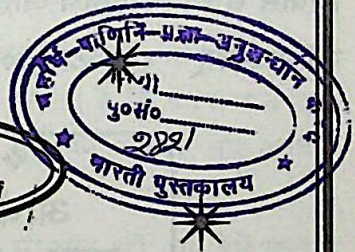 महर्षि-पाणिनि-प्रज्ञा अनुसन्धान
पु०सं०
भारती पुस्तकालय